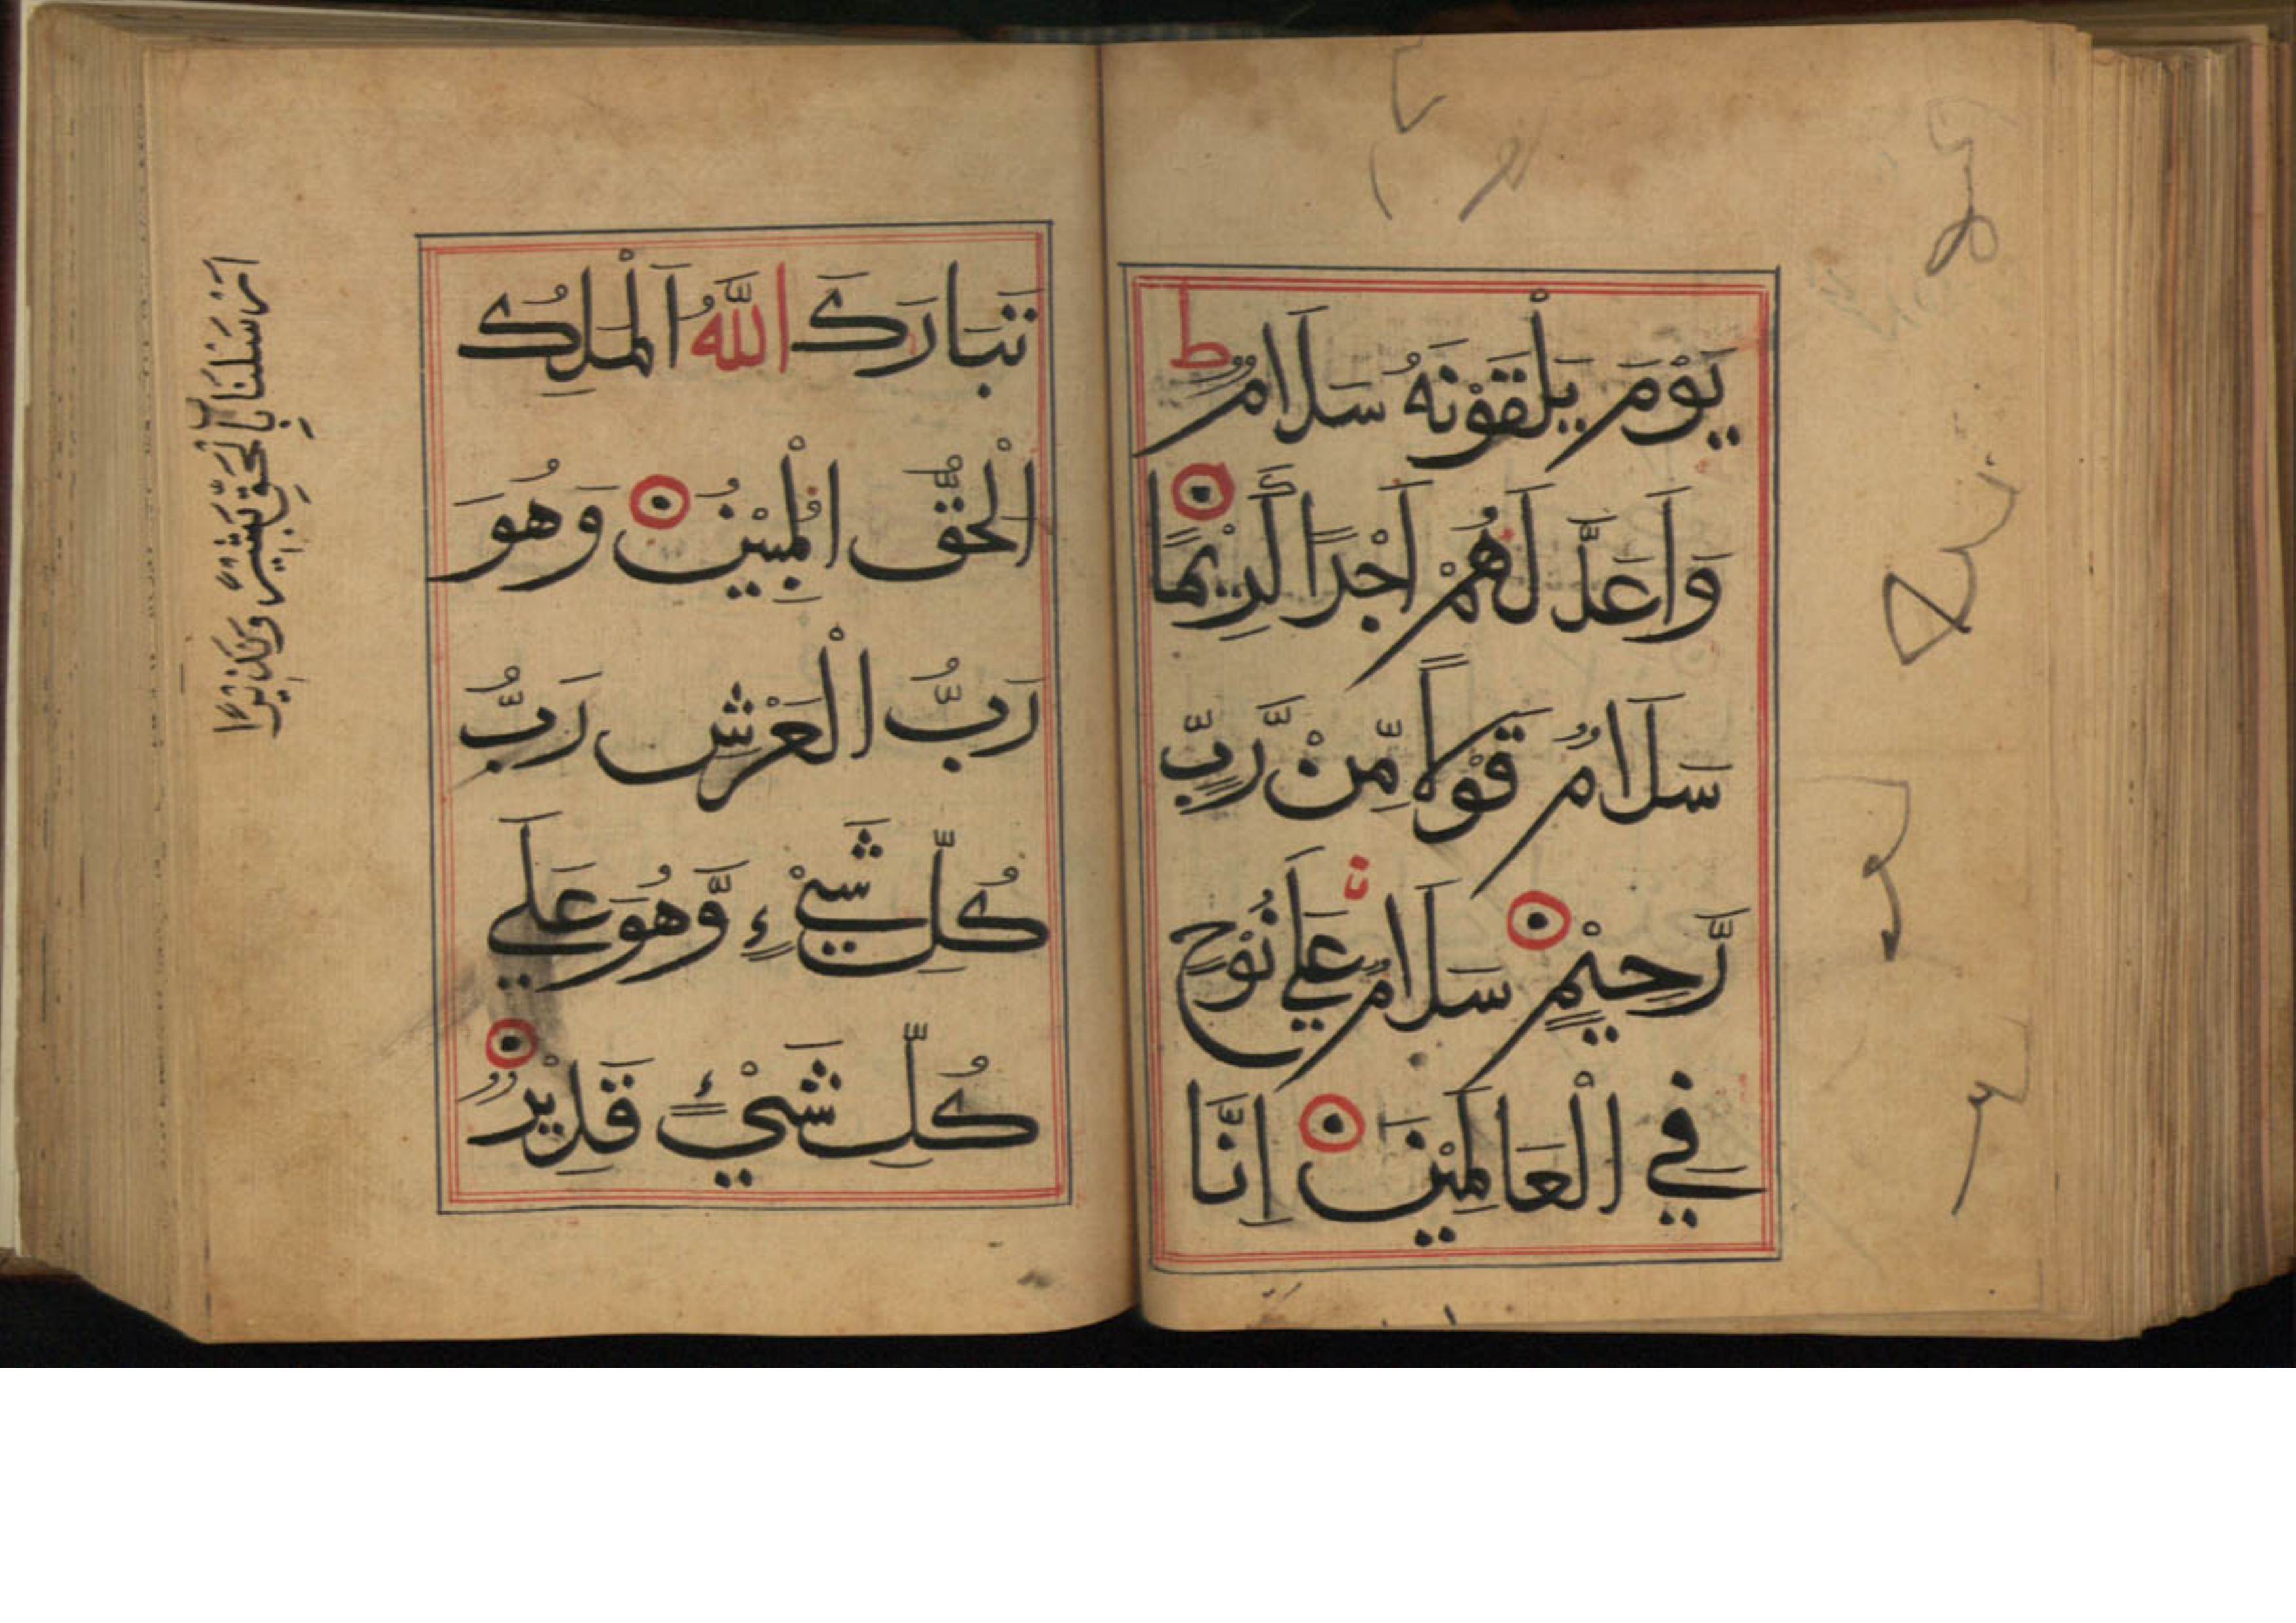 يَوْمَ يَلْقَوْنَهُ سَلَامٌ ط
وَاَعَدَّ لَهُمْ اَجْرًا كَرِيْمًا
سَلَامٌ قَوْلًا مِّنْ رَّبٍّ
رَّحِيْمٍ سَلَامٌ عَلَي نُوْحٍ
فِي الْعَالَمِيْنَ اِنَّا
تَبَارَكَ اللّٰهُ اَلْمَلِكُ
الْحَقُّ الْمُبِيْنُ وَهُوَ
رَبُّ الْعَرْشِ رَبُّ
كُلِّ شَيْءٍ وَّهُوَ عَلَي
كُلِّ شَيْءٍ قَدِيْرٌ
اَرْسَلْنَا بِالْحَقِّ بَشِيْرًا وَنَذِيْرًا